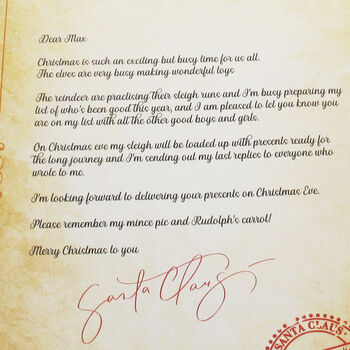 Dear Max
Christmas is such an exciting but busy time for us all.
The elves are very busy making wonderful toys
The reindeer are practising their sleigh runs and I'm busy preparing my
list of who's been good this year, and I am pleased to let you know you
are on my list with all the other good boys and girls.
On Christmas eve my sleigh will be loaded up with presents ready for
the long journey and I'm sending out my last replies to everyone who
wrote to me.
I'm looking forward to delivering your presents on Christmas Eve.
Please remember my mince pie and Rudolph's carrot!
Merry Christmas to you
Santa Claus
SANTA CLAUS